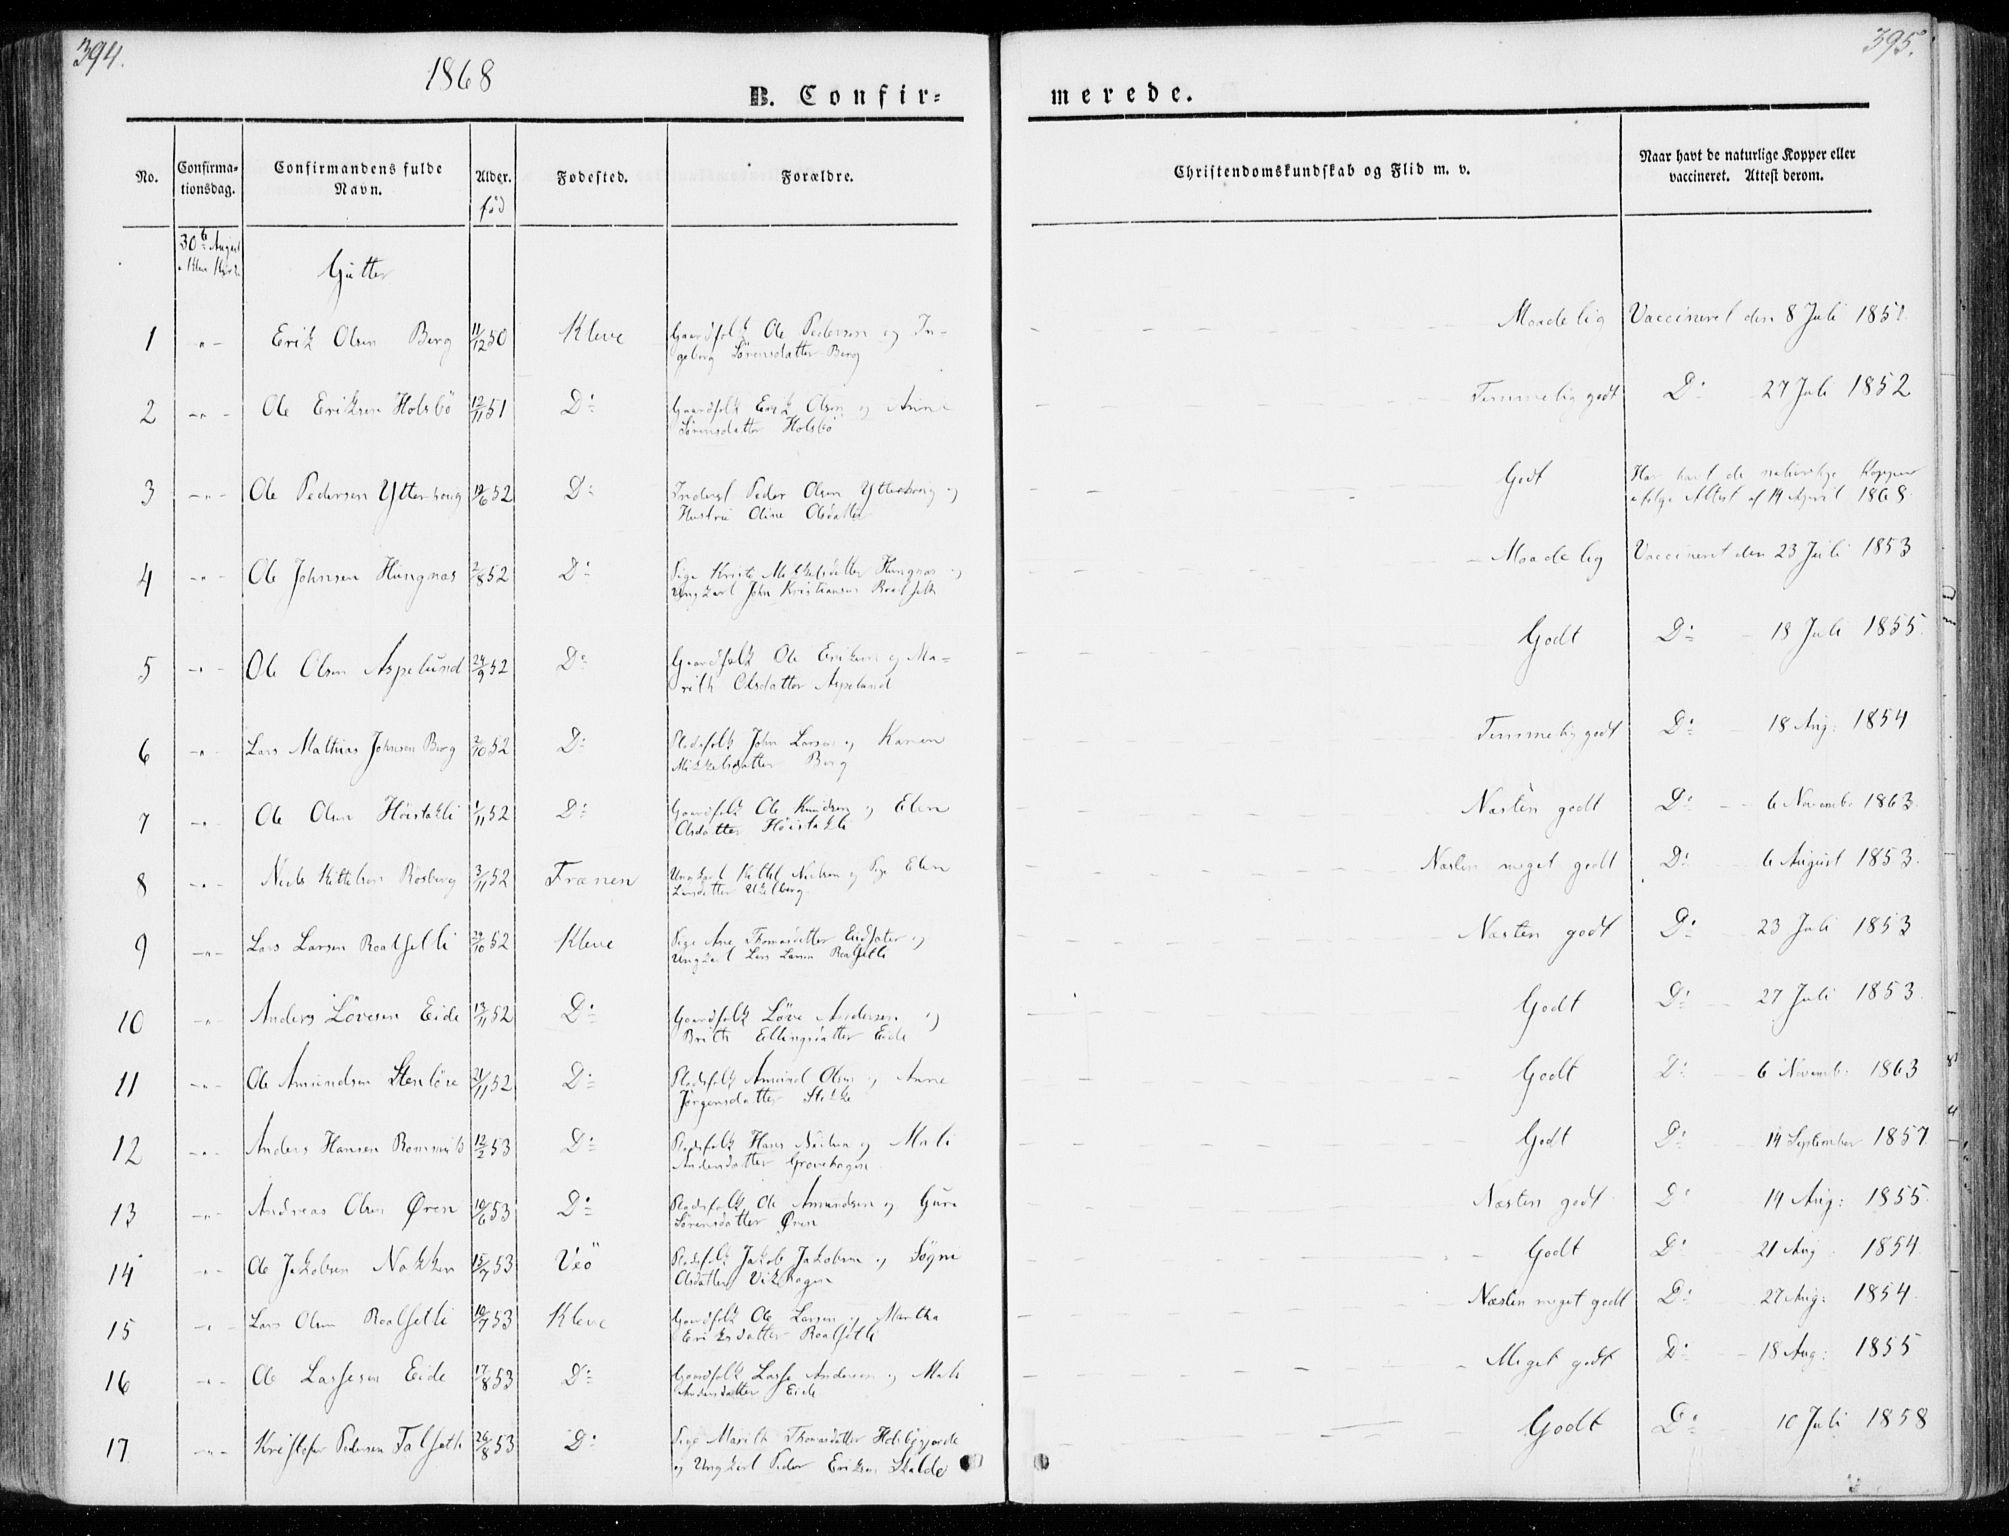 394.
1868
B. Confir=
merede.
395.
No.
Confirma-
tionsdag.
Confirmandens fulde
Navn.
Alder.
fød
Fødested.
Forældre.
Christendomskundskab og Flid m. v.
Naar havt de naturlige Kopper eller
vaccineret. Attest derom.
30te August
Gutter
1 -"- Erik Olsen Berg 11/12 50 Kleve Gaardfolk Ole Pedersen og In-
geborg Sörensdatter Berg
Maadelig Vaccineret den 8 Juli 1851.
2 -"- Ole Eriksen Holsbö 12/11 51 Do Gaardfolk Erik Olsen og Anne
Sörensdatter Holsbö
Temmelig godt Do 27 Juli 1852
3 -"- Ole Pedersen Ytterhoug 19/6 52 Do Inderst Peder Olsen Ytterhoug og
Hustru Oline Olsdatter
Godt Har havt de naturlige Kopper
ifölge Attest af 14 April 1868.
4 -"- Ole Johnsen Hungnæs 2/8 52 Do Pige Mikkelsdatter Hungnæs og
Ungkarl John Kristiansen
Maadelig Vaccineret den 23 Juli 1853
5 -"- Ole Olsen Aspelund 24/9 52 Do Gaardfolk Ole Eriksen og Ma-
rith Olsdatter Aspelund
Godt Do 18 Juli 1855.
6 -"- Lars Mathias Johnsen Berg 2/10 52 Do Pladsfolk John Larsen og Karen
Mikkelsdatter Berg
Temmelig godt Do 18 Aug: 1854
7 -"- Ole Olsen Höistakli 1/11 52 Do Gaardfolk Ole Knudsen og Elen
Olsdatter Höistakli
Næsten godt Do 6 November 1863.
8 -"- Niels Kittelsen Rösberg 3/11 52 Frænen Ungkarl Kittel Nielsen og Pige Elen
Larsdatter
Næsten meget godt Do 6 August 1853.
9 -"- Lars Larsen Roalsetli 29/10 52 Kleve Pige Ane Thomasdatter Eidsæter og
Ungkarl Lars Larsen Roalsetli
Næsten godt Do 23 Juli 1853
10 -"- Anders Lövesen Eide 13/11 52 Do Gaardfolk Löve Andersen og
Brith Ellingsdatter Eide
Godt Do 27 Juli 1853.
11 -"- Ole Amundsen Stenlöse 21/11 52 Do Pladsfolk Amund Olsen og Anne
Jörgensdatter Stokke
Godt Do 6 November 1863
12 -"- Anders Hansen 12/2 53 Do Pladsfolk Hans Nielsen og Mali
Andersdatter Grovehagen
Godt Do 14 September 1857.
13 -"- Andreas Olsen Øren 10/6 53 Do Pladsfolk Ole Amundsen og Guro
Sörensdatter Øren
Næsten godt Do 14 Aug: 1855.
14 -"- Ole Jakobsen Nakken 15/7 53 Veö Pladsfolk Jakob Jakobsen og Sögne
Olsdatter Vikehagen
Godt Do 21 Aug: 1854.
15 -"- Lars Olsen Roalsetli 19/7 53 Kleve Gaardfolk Ole Larsen og Martha
Eriksdatter Roalsetli
Næsten meget godt Do 27 Aug: 1854
16 -"- Ole Lassesen Eide 17/8 53 Do Gaardfolk Lasse Andersen og Mali
Andersdatter Eide
Meget godt Do 18 Aug: 1855
17 -"- Kristofer Pedersen Talseth 26/8 53 Do Pige Marith Thomasdatter
og Ungkarl Peder Eriksen
Godt Do 10 Juli 1858